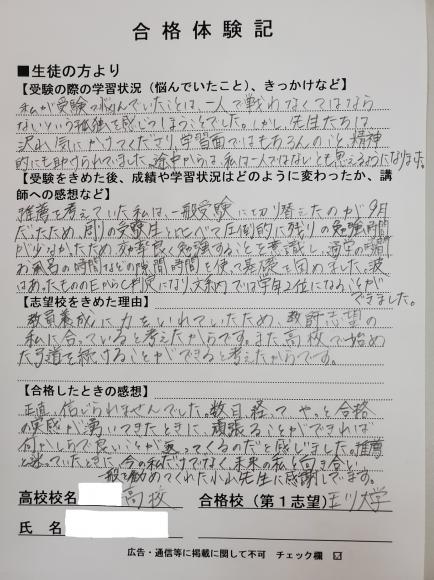 合格体験記
■生徒の方より
【受験の際の学習状況（悩んでいたこと）、きっかけなど】
私が受験で悩んでいたことは、一人で戦わなくてはなら
ないという孤独を感じてしまうことでした。しかし、先生たちは
沢山気にかけてくださり、学習面ではもちろんのこと精神
的にも助けられていました。途中からは、私は一人ではないとも思えるようになります。
【受験をきめた後、成績や学習状況はどのように変わったか、講
師への感想など】
推薦を考えていた私は、一般受験に切り替えたのが9月
だったため、周りの受験生と比べて圧倒的に残りの勉強時間
が少なかったため効率良く勉強することを意識し、通学の時間や
お風呂の時間などの隙間時間を使って基礎を固めました。波
はあったもののEからC判定になり、文系内では学年2位になることが
できました。
【志望校をきめた理由】
教員養成に力をいれていたため、教師志望の
私に合っていると考えたからです。また高校で始め
た弓道を続けることができると考えたからです。
【合格したときの感想】
正直、信じられませんでした。数日経って やっと合格
の実感が湧いてきたときに、頑張ることができれば
何かしらで良いことが返ってくるのだと感じました。推薦
と迷っていたときに、今の私だけでなく、未来の私と向き合い
一般を勧めてくれた小山先生に感謝しています。
高校校名 高校 合格校（第１志望）玉川大学
氏 名
広告・通信等に掲載に関して不可 チェック欄 ☑